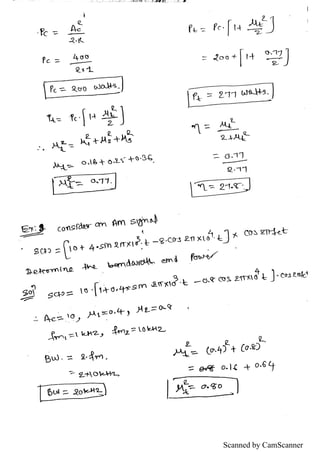 Pc = Ac² / 2·R
Pc = 400 / 2×1
Pc = 200 watts.
Pt = Pc·[1+ μt²/2]
∴ μt² = μ1² + μ2² + μ3
μt = 0.16 + 0.25 + 0.36,
μt² = 0.77.
Pt = Pc·[1+ μt²/2]
= 200 + [1+ 0.77/2]
Pt = 277 watts.
η = μt² / 2+μt²
= 0.77 / 2.77
η = 27.8·
Ex: consider an Am signal
s(t) = [10 + 4·sin 2π×10³·t − 8·cos 2π×10⁴ t] × cos 2πfct
Determine the bandwidth and Power
Sol s(t) = 10·[1+0.4×sin 2π×10³ t − 0.8 cos 2π×10⁴ t]·cos 2πfct
∴ Ac = 10, μ1 = 0.4, μ2 = 0.8
fm1 = 1 kHz, fm2 = 10kHz
BW. = 2·fm.
= 2×10kHz
BW = 20kHz
μt² = (0.4)² + (0.8)²
= 0.16 + 0.64
μt² = 0.80
Scanned by CamScanner